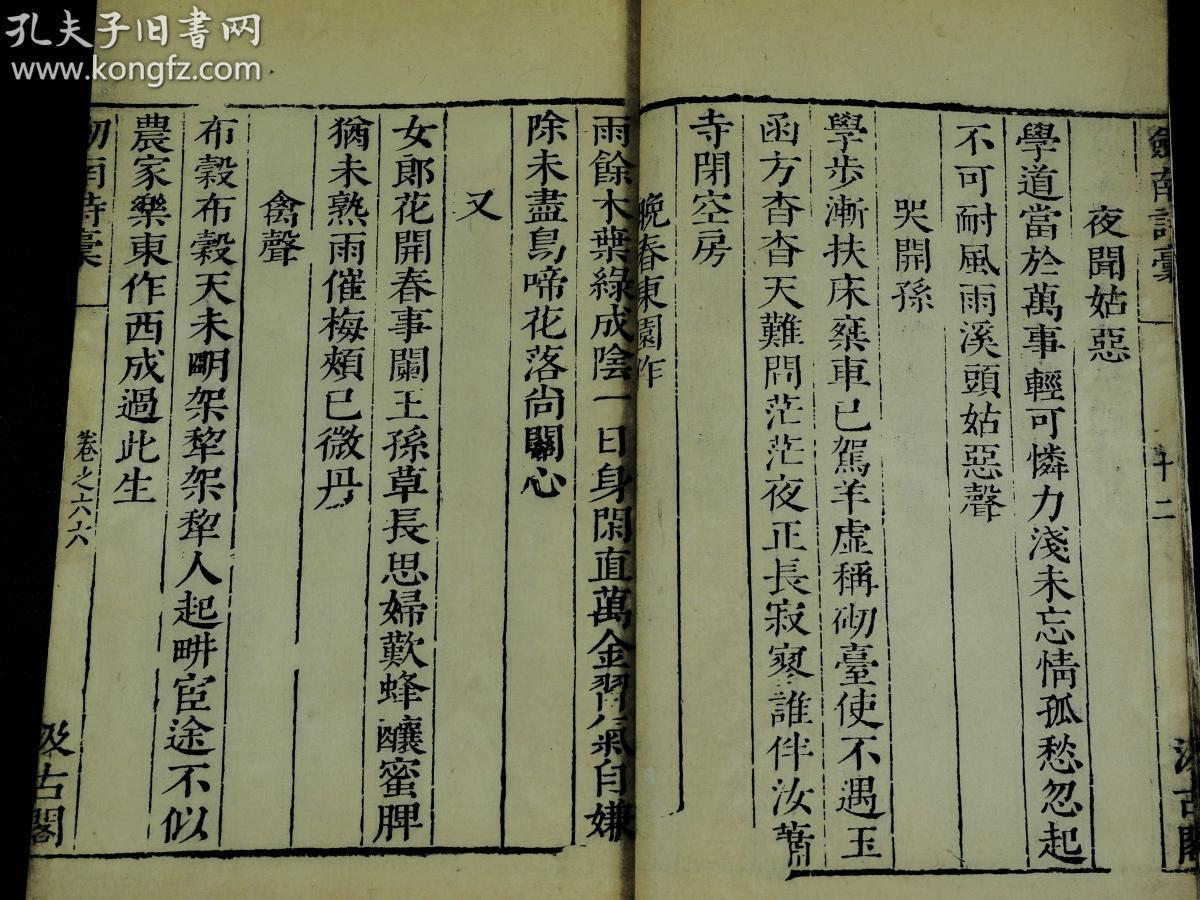 孔夫子旧书网
www.kongfz.com
劒南詩藁
十二
汲古閣
夜聞姑惡
學道當於萬事輕可憐力淺未忘情孤愁忽起
不可耐風雨溪頭姑惡聲
哭開孫
學步漸扶床槖車已駕羊虛稱砌臺使不遇玉
函方杳杳天難問茫茫夜正長寂寥誰伴汝蕭
寺閉空房
晚春東園作
雨餘木葉綠成陰一日身閑直萬金習氣自嫌
除未盡鳥啼花落尚關心
又
女郎花開春事闌王孫草長思婦歎蜂釀蜜脾
猶未熟雨催梅頰已微丹
禽聲
布穀布穀天未明架犂架犂人起畊宦途不似
農家樂東作西成過此生
劒南詩藁
卷之六六
汲古閣